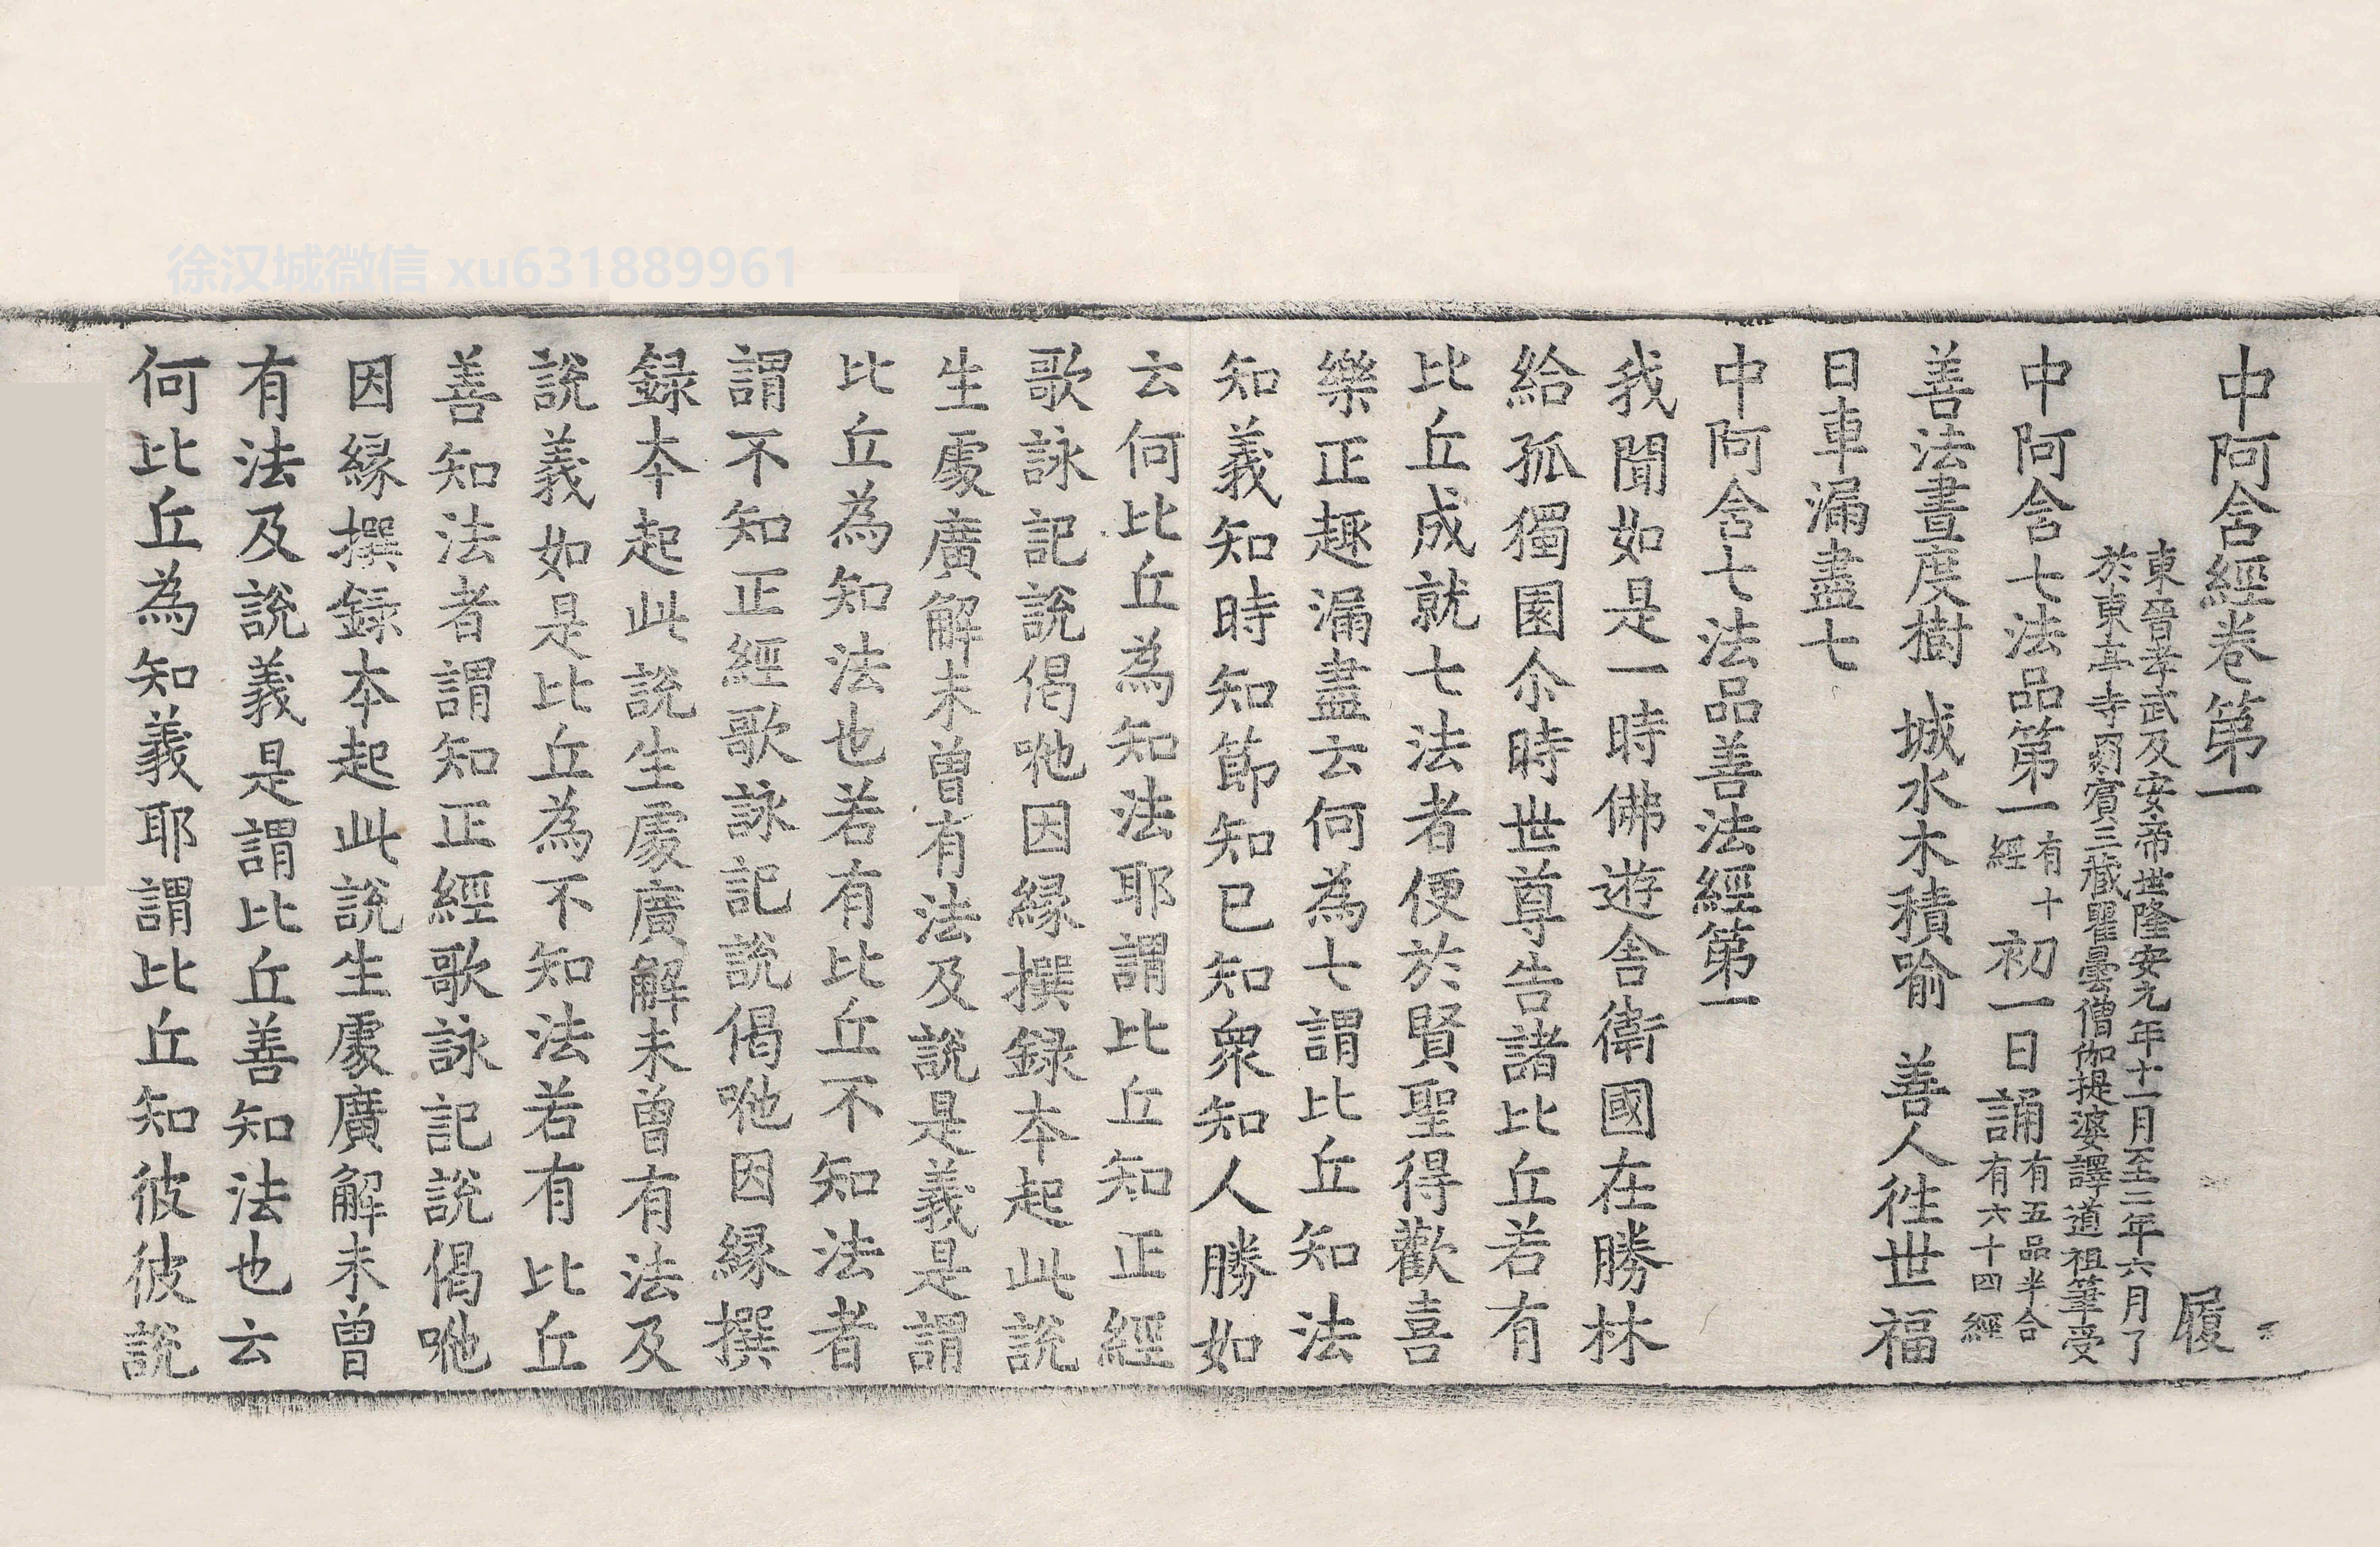 中阿含經卷第一 履
東晉孝武及安帝世隆安元年十一月至二年六月了
於東亭寺罽賓三藏瞿曇僧伽提婆譯道祖筆受
中阿含七法品第一有十經初一日誦有五品半合有六十四經
善法晝度樹 城水木積喻 善人徃世福
日車漏盡七
中阿含七法品善法經第一
我聞如是一時佛遊舍衛國在勝林
給孤獨園尒時世尊告諸比丘若有
比丘成就七法者便於賢聖得歡喜
樂正趣漏盡云何為七謂比丘知法
知義知時知節知己知衆知人勝如
云何比丘為知法耶謂比丘知正經
歌詠記說偈咃因緣撰録本起此說
生處廣解未曾有法及說是義是謂
比丘為知法也若有比丘不知法者
謂不知正經歌詠記說偈咃因緣撰
録本起此說生處廣解未曾有法及
說義如是比丘為不知法若有比丘
善知法者謂知正經歌詠記說偈咃
因緣撰録本起此說生處廣解未曾
有法及說義是謂比丘善知法也云
何比丘為知義耶謂比丘知彼彼說
徐汉城微信 xu631889961